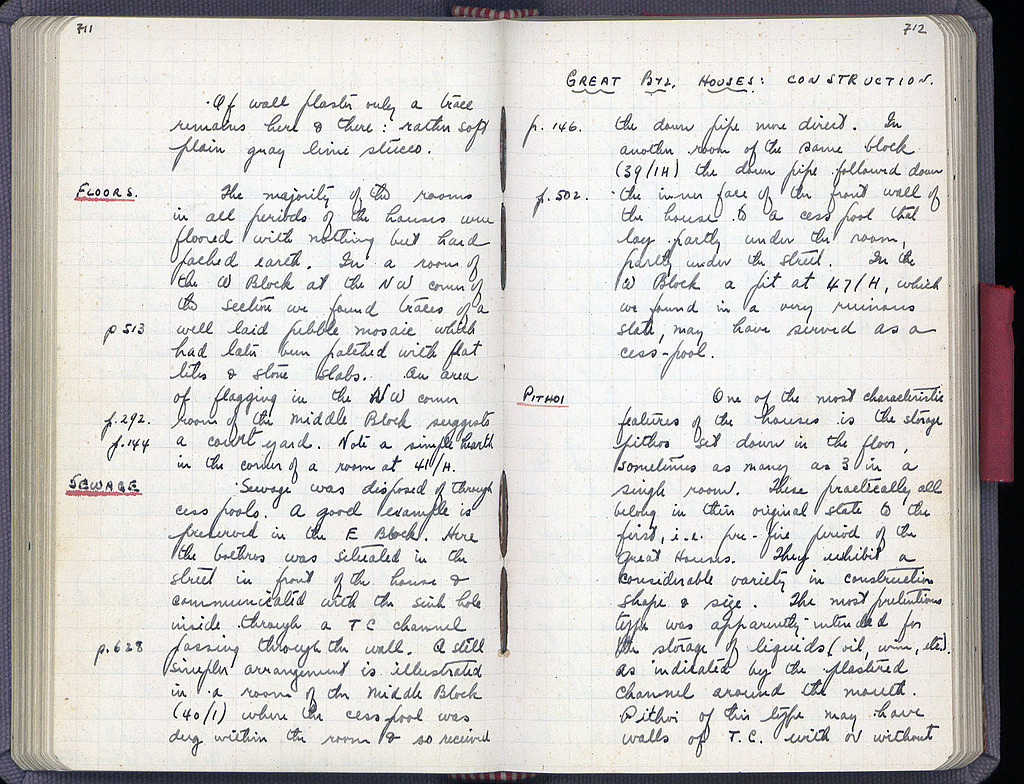 711
·Of wall plaster only a trace
remains here & there: rather soft
plain gray lime stucco.
FLOORS.
The majority of the rooms
in all periods of the houses were
floored with nothing but hard
packed earth. In a room of
the W Block at the NW corner of
the section we found traces of a
p 513 well laid pebble mosaic which
had later been patched with flat
tiles & stone slabs. An area
of flagging in the NW corner
p. 292. room of the Middle Block suggests
p. 144 a court yard. Note a simple hearth
in the corner of a room at 41/H.
SEWAGE
·Sewage was disposed of through
cess pools. A good example is
preserved in the E Block. Here
the bothros was situated in the
street in front of the house &
communicated with the sink hole
inside through a TC channel
p. 628 passing through the wall. A still
simpler arrangement is illustrated
in a room of the Middle Block
(40/1) where the cess pool was
dug within the room & so received
712
GREAT BYZ. HOUSES: CONSTRUCTION.
p. 146. the down pipe more direct. In
another room of the same block
(39/1H) the down pipe followed down
p. 502. the inner face of the front wall of
the house to a cess pool that
lay partly under the room,
partly under the street. In the
W Block a pit at 47/H, which
we found in a very ruinous
state, may have served as a
cess-pool.
PITHOI
One of the most characteristic
features of the houses is the storage
pithos set down in the floor,
sometimes as many as 3 in a
single room. These practically all
belong in their original state to the
first, i.e. pre-fire period of the
Great Houses. They exhibit a
considerable variety in construction
shape & size. The most pretentious
type was apparently intended for
the storage of liquids (oil, wine, etc).
as indicated by the plastered
channel around the mouth.
Pithoi of this type may have
walls of T.C. with or without